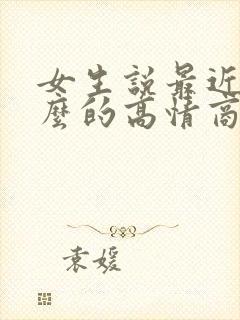 女生說最近
麼的高情商
袁媛